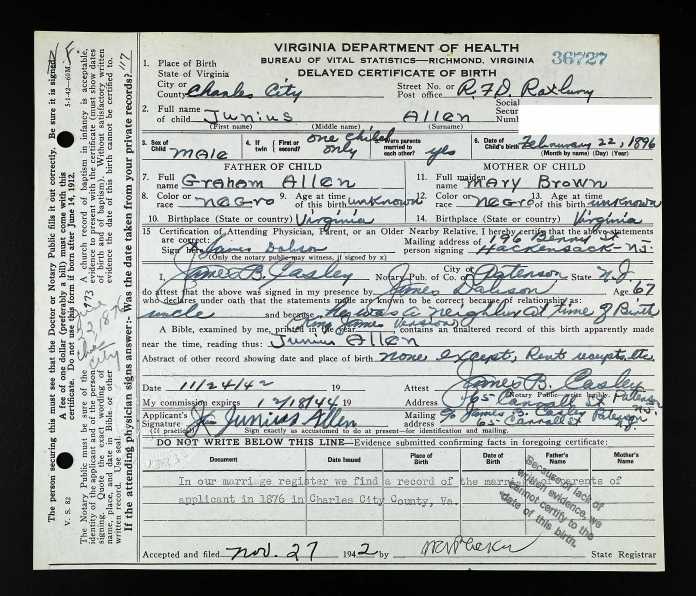 VIRGINIA DEPARTMENT OF HEALTH
BUREAU OF VITAL STATISTICS—RICHMOND, VIRGINIA
DELAYED CERTIFICATE OF BIRTH
36727
1. Place of Birth
State of Virginia
City or County Charles City
Street No. or Post office R.F.D. Roxbury
2. Full name of child Junius Allen
(First name) (Middle name) (Surname)
Social Secur Numb
3. Sex of Child male 4. If twin First or second? one child only 5. Were parents married to each other? yes 6. Date of Child's birth February 22, 1896
(Month by name) (Day) (Year)
FATHER OF CHILD
MOTHER OF CHILD
7. Full name Graham Allen
11. Full maiden name Mary Brown
8. Color or race Negro 9. Age at time of this birth unknown
12. Color or race Negro 13. Age at time of this birth unknown
10. Birthplace (State or country) Virginia
14. Birthplace (State or country) Virginia
15 Certification of Attending Physician, Parent, or an Older Nearby Relative. I hereby certify that the above statements are correct:
Sign here James Dabson
(Only the notary public may witness, if signed by x)
Mailing address of person signing 96 Berry St Hackensack - NJ.
I, James B. Casley Notary Pub. of City Co. Paterson State N.J.
do attest that the above was signed in my presence by James Dabson Age 67
who declares under oath that the statements made above are known to be correct because of relationship as:
uncle and because he was a neighbor at time of Birth
A Bible, examined by me, printed in the year (King James Version) contains an unaltered record of this birth apparently made
near the time, reading thus: Junius Allen
Abstract of other record showing date and place of birth none except, Rent receipts etc.
Date 11/24/42 19 Attest James B. Casley
Notary Public write legibly.
My commission expires 12/18/44 19 Address 65 Carroll St Paterson NJ.
Applicant's Signature Junius Allen
Mailing Address c/o James B. Casley 65 Carroll St Paterson N.J.
Sign exactly as accustomed to do at present—for matching and identification.
DO NOT WRITE BELOW THIS LINE—Evidence submitted confirming facts in foregoing certificate:
Document Date Issued Place of Birth Date of Birth Father's Name Mother's Name
In our marriage register we find a record of the marr parents of
applicant in 1876 in Charles City County, Va.
Because of lack of written evidence, we cannot certify to the date of this birth.
Accepted and filed Nov. 27 1942 State Registrar
The person securing this must see that the Doctor or Notary Public fills it out correctly. Be sure it is signed.
A fee of one dollar (preferably a bill) must come with this certificate. Do not use this form if born after June 14, 1912.
The Notary Public must be sure of the identity of the applicant and of the person signing. Quote the exact wording of name, place, and date in Bible or other written record. Use seal.
A church record of baptism in infancy is acceptable, evidence to present with the certificate (must show dates of birth and of baptism). Without satisfactory written evidence the date of this birth cannot be certified to.
If the attending physician signs answer:- Was the date taken from your private records?
V. S. 82
5-1-42—60M
117
973
22, 1876
Cha City